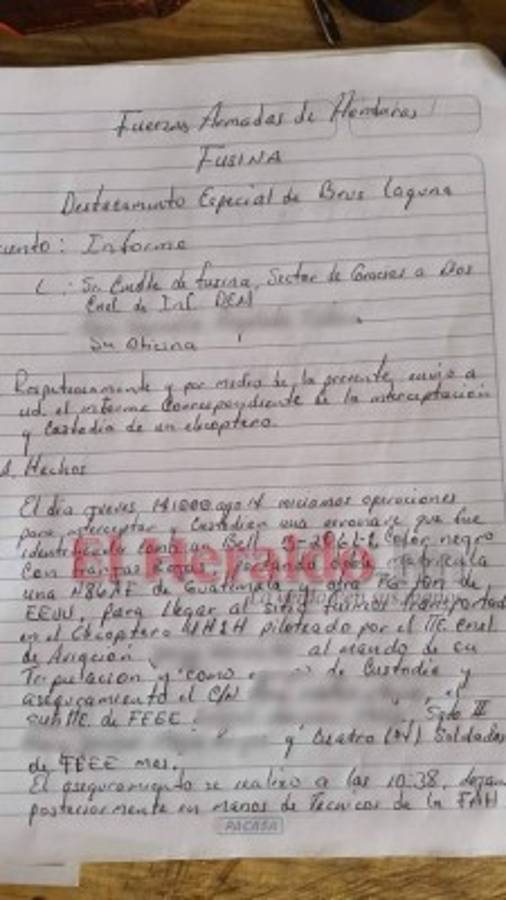 Fuerzas Armadas de Honduras
FUSINA
Destacamento Especial de Brus Laguna
unto: Informe
Su Cmdte de fusina, Sector de Gracias a Dios
Cnel de Inf. DEM
Su Oficina
Respetuosamente y por medio de la presente envio a
ud. el informe correspondiente de la interceptación
y Custodia de un elicoptero.
A. Hechos
El dia jueves 141000 ago 14 iniciamos operaciones
para interceptar y Custodiar una aeronave que fue
identificada como un Bell Color negro
con franjas matricula
una N86AF de Guatemala y otra de
EEUU, para llegar al sitio fuimos transportados
en el Elicoptero UH1H piloteado por el TTE. Cnel
de Aviación al mando de su
Tripulacion y como de Custodia y
aseguramiento el C/N
SubTTE. de FFEE. Sgto II
y Cuatro (04) Soldados
de FFEE mas.
El aseguramiento se realizo a las 10:38, dejan
posteriormente en manos de Tecnicos de la FAH
El Heraldo
PACASA